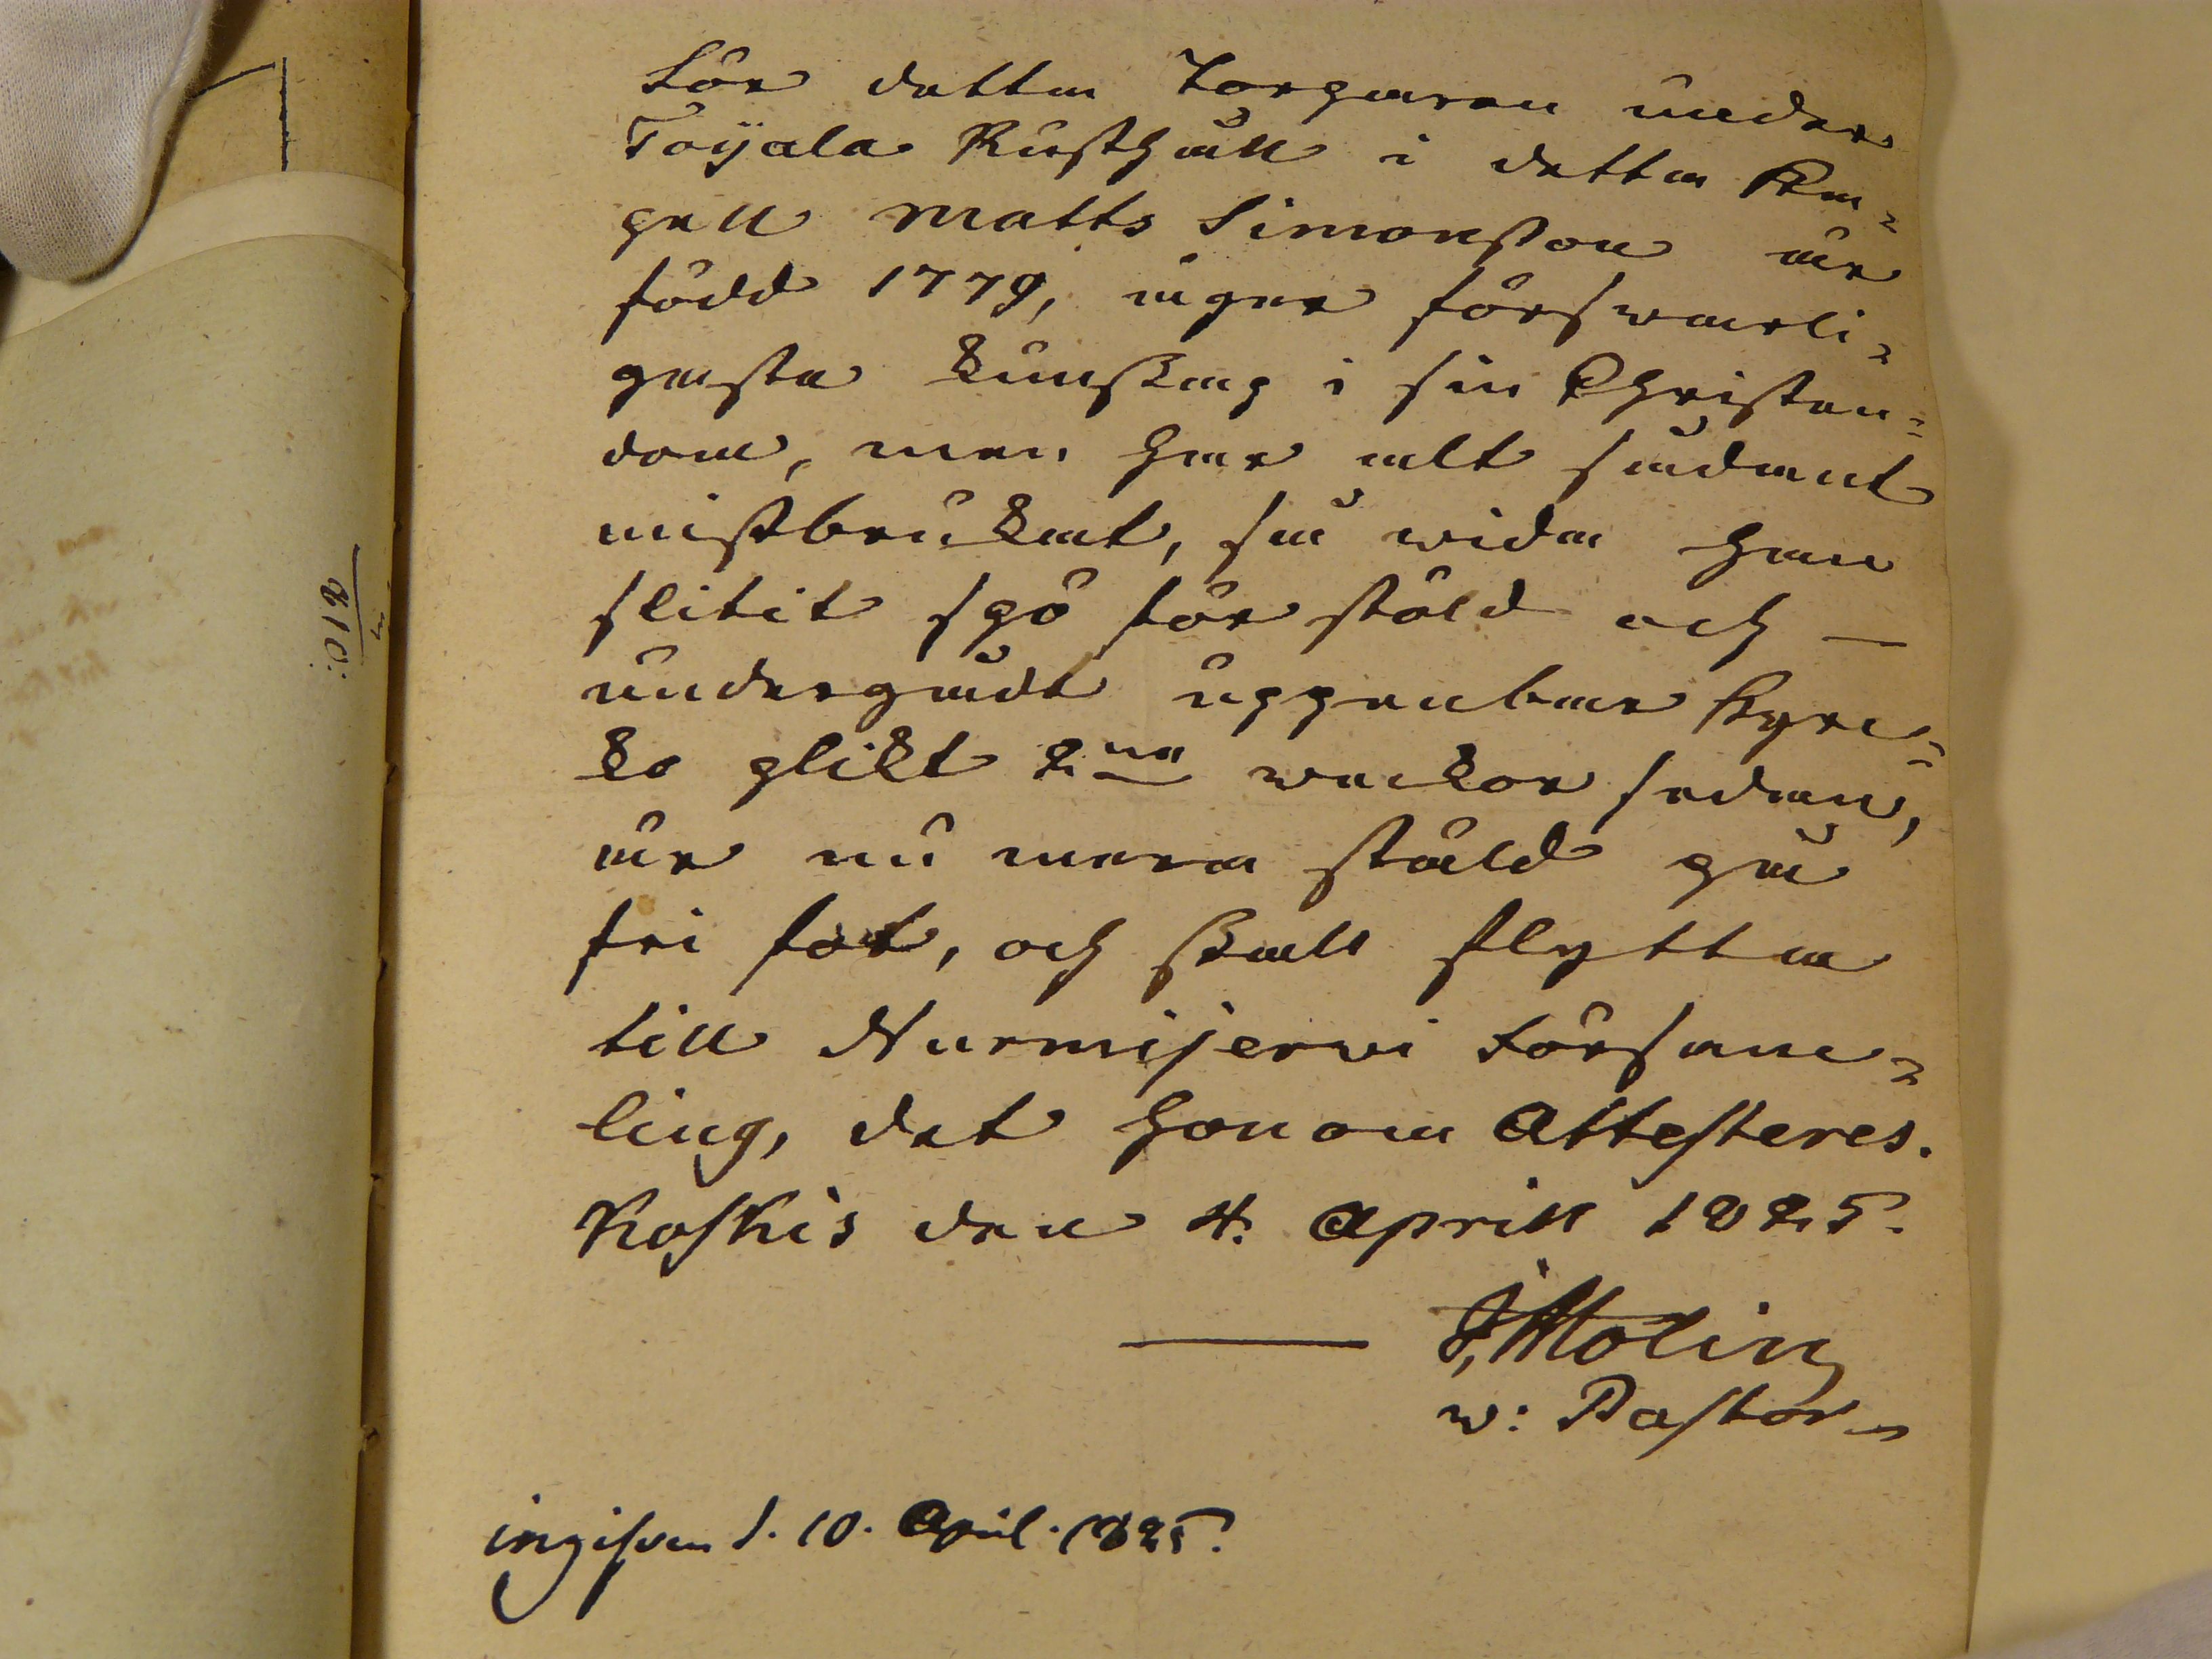 För detta Torparen under
Toÿala Rusthåll i detta Ka=
pell Matts Simonsson är
född 1779, äger förswarli=
gaste kunskap i sin Christen=
dom, men har alt sådant
missbrukat, så wida han
slitit spö för stöld och —
undergådt uppenbar Kyrc=
ko plikt 2ne weckor sedan,
är nu mera stäld på
fri fot, och skall flytta
till Nurmijerwi Försam=
ling, det honom Attesteres.
Koskis den 4. Aprill 1825.
— J, Molin
w: Pastor
ingifven d. 10. April. 1825.
№ 10: